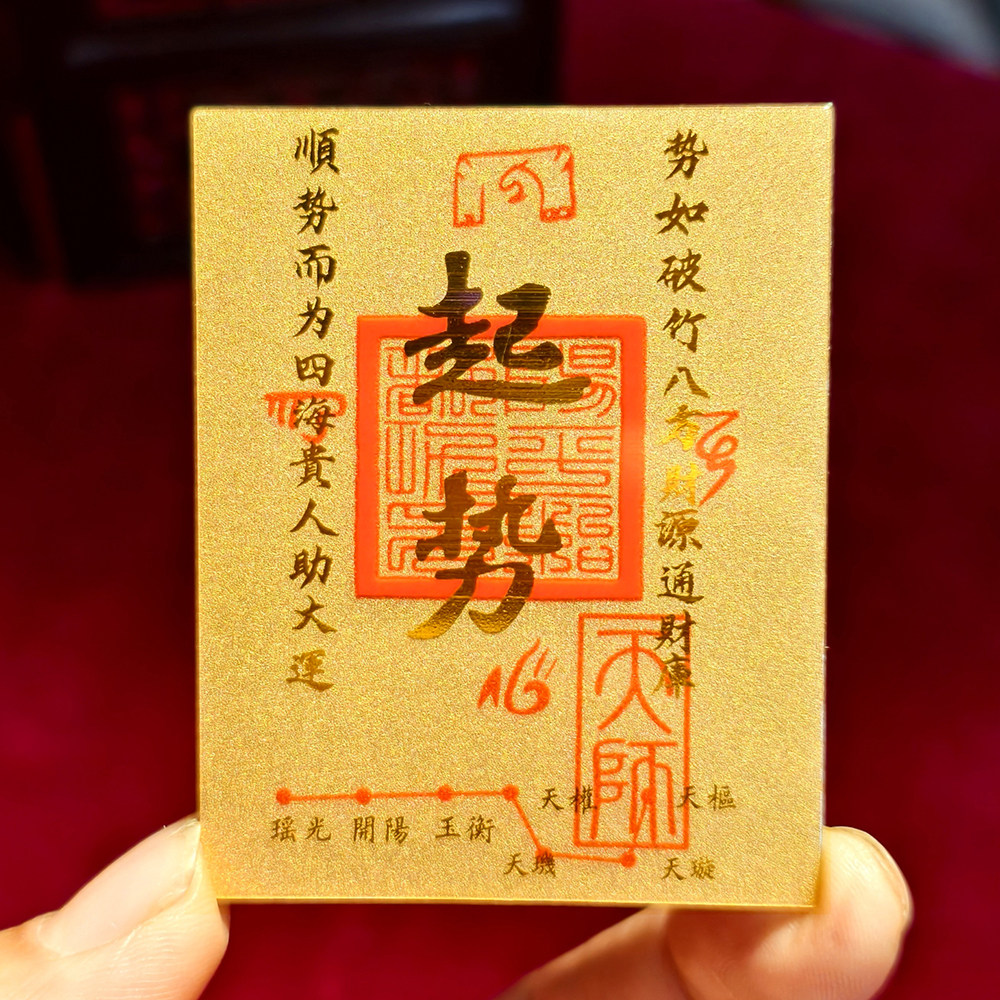 势如破竹八方財源通財庫
起势
順势而为四海貴人助大運
陽平治都功印
天師
瑶光
開陽
玉衡
天權
天樞
天璣
天璇